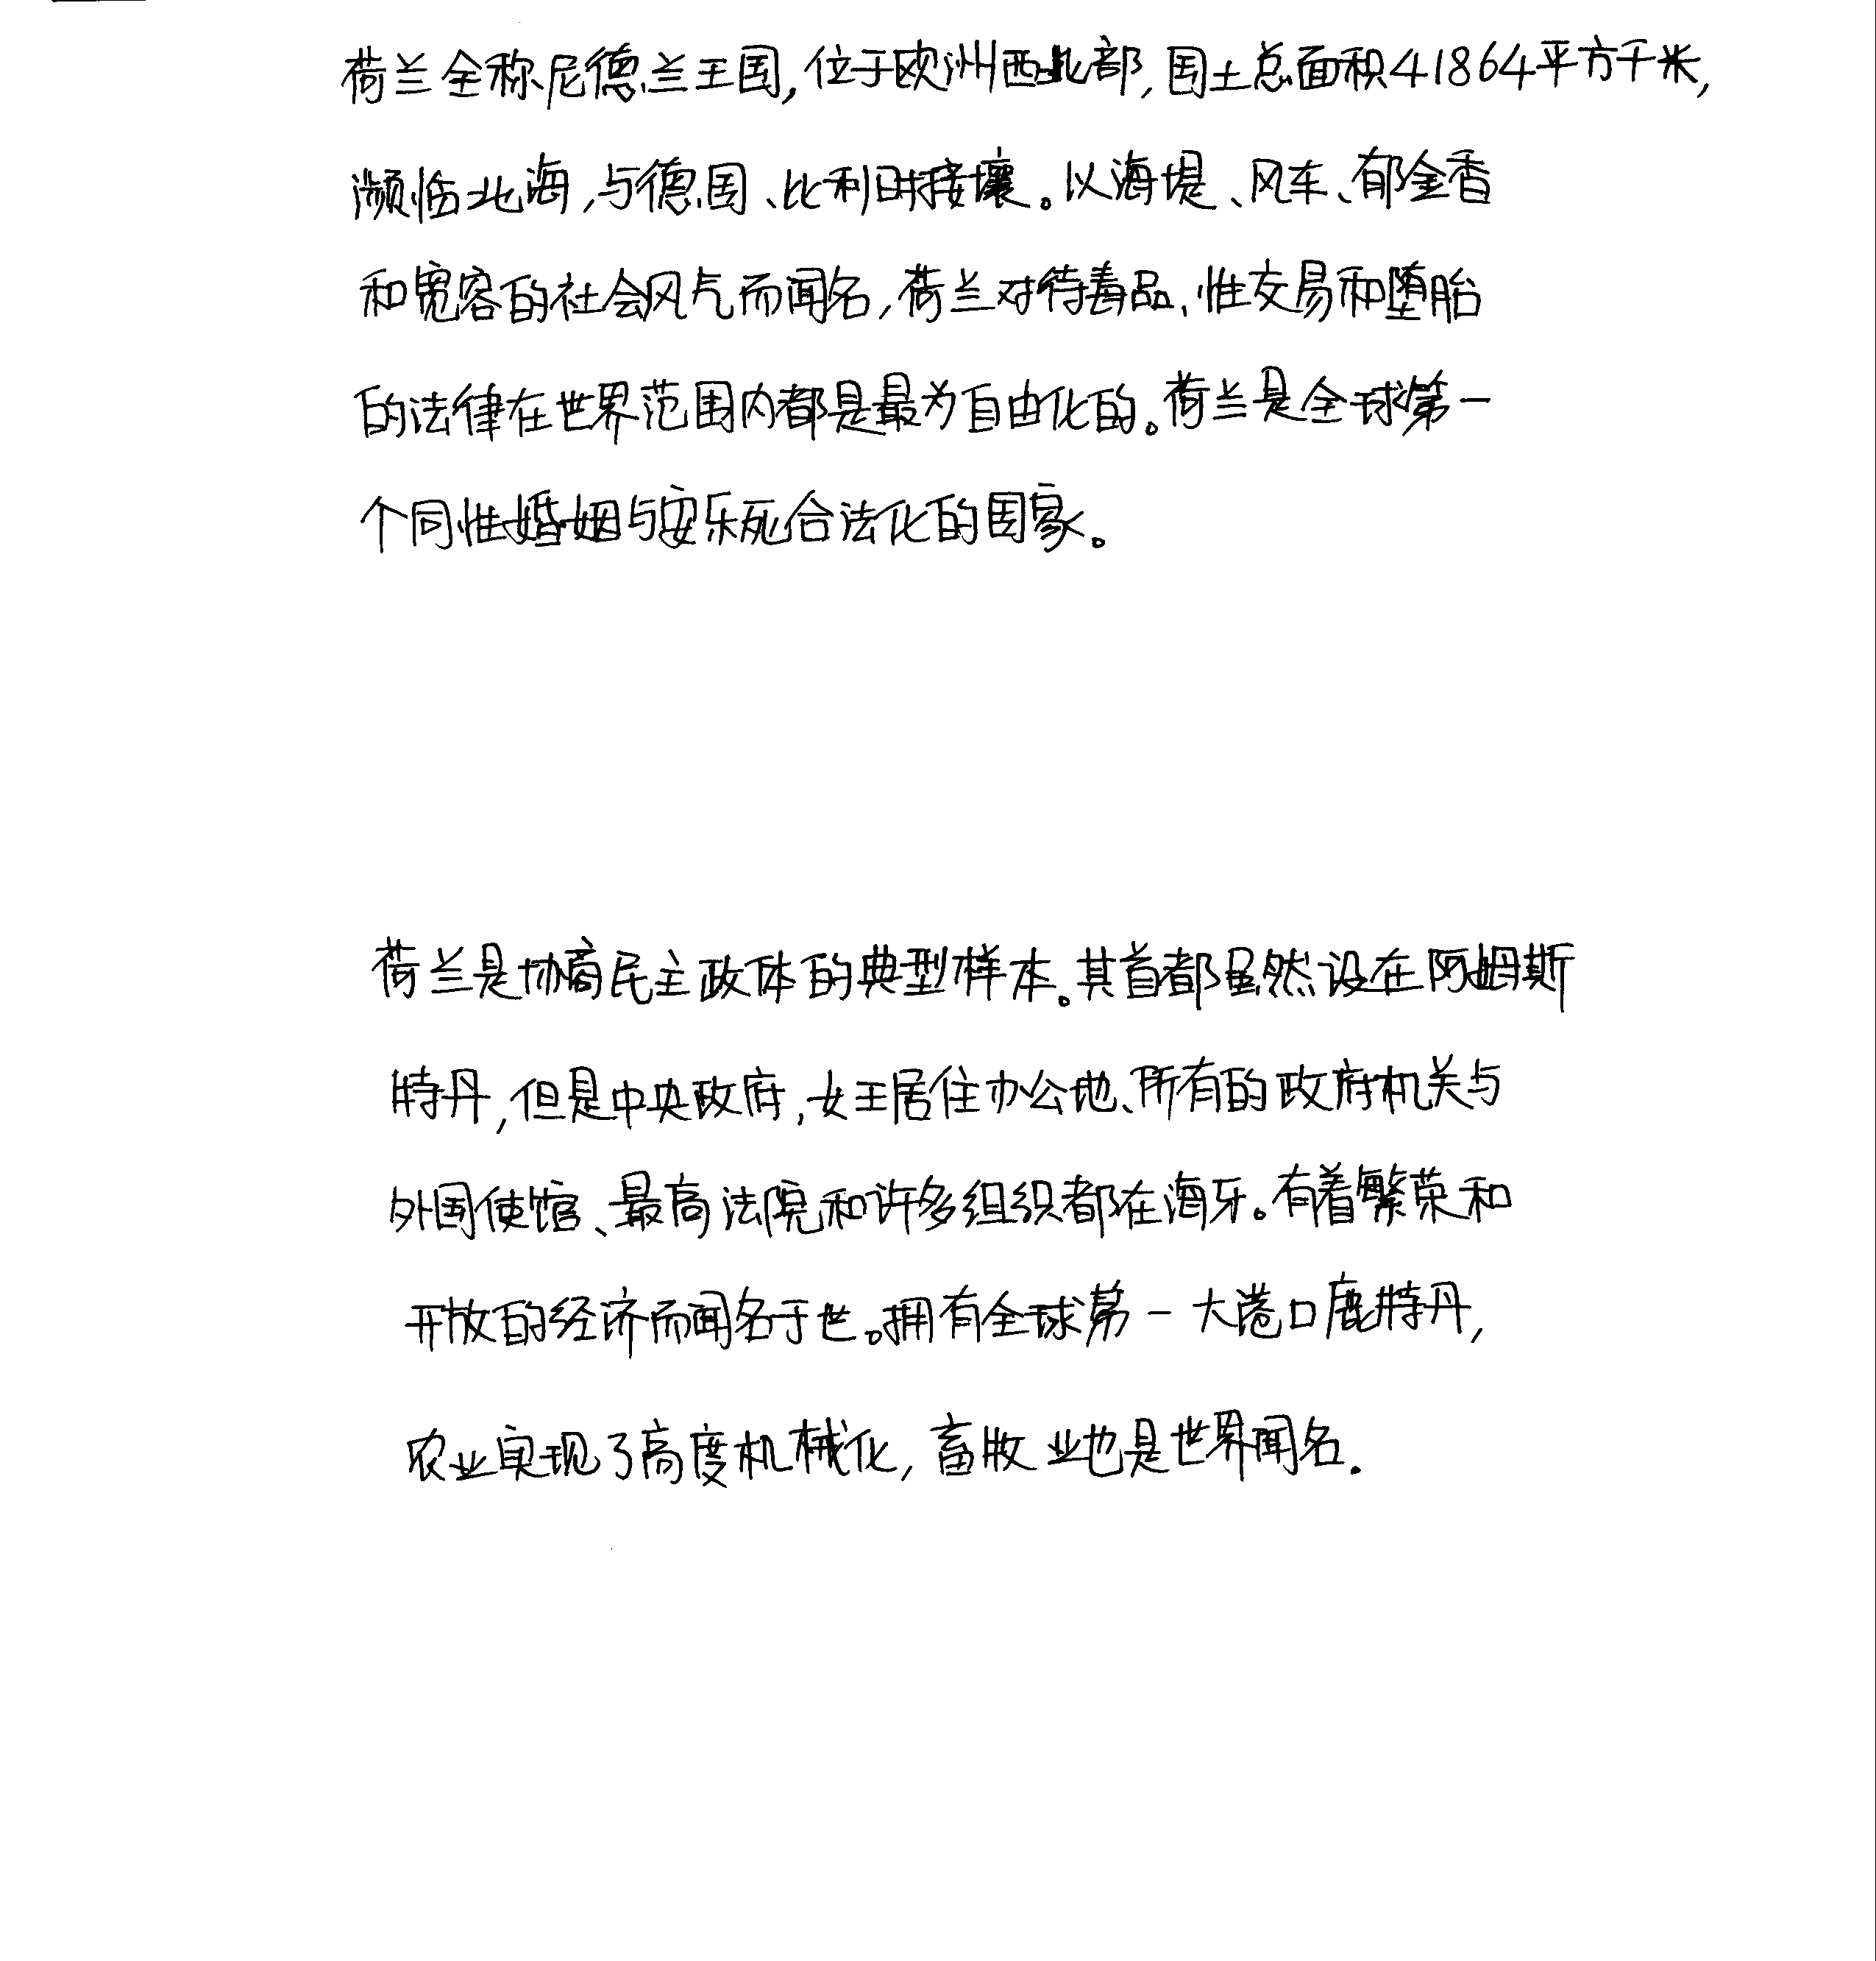 荷兰全称尼德兰王国,位于欧洲西北部,国土总面积41864平方千米,
濒临北海,与德国、比利时接壤。以海堤、风车、郁金香
和宽容的社会风气而闻名,荷兰对待毒品、性交易和堕胎
的法律在世界范围内都是最为自由化的。荷兰是全球第一
个同性婚姻与安乐死合法化的国家。
荷兰是协商民主政体的典型样本。其首都虽然设在阿姆斯
特丹,但是中央政府,女王居住办公地、所有的政府机关与
外国使馆、最高法院和许多组织都在海牙。有着繁荣和
开放的经济而闻名于世。拥有全球第一大港口鹿特丹,
农业实现了高度机械化,畜牧业也是世界闻名.